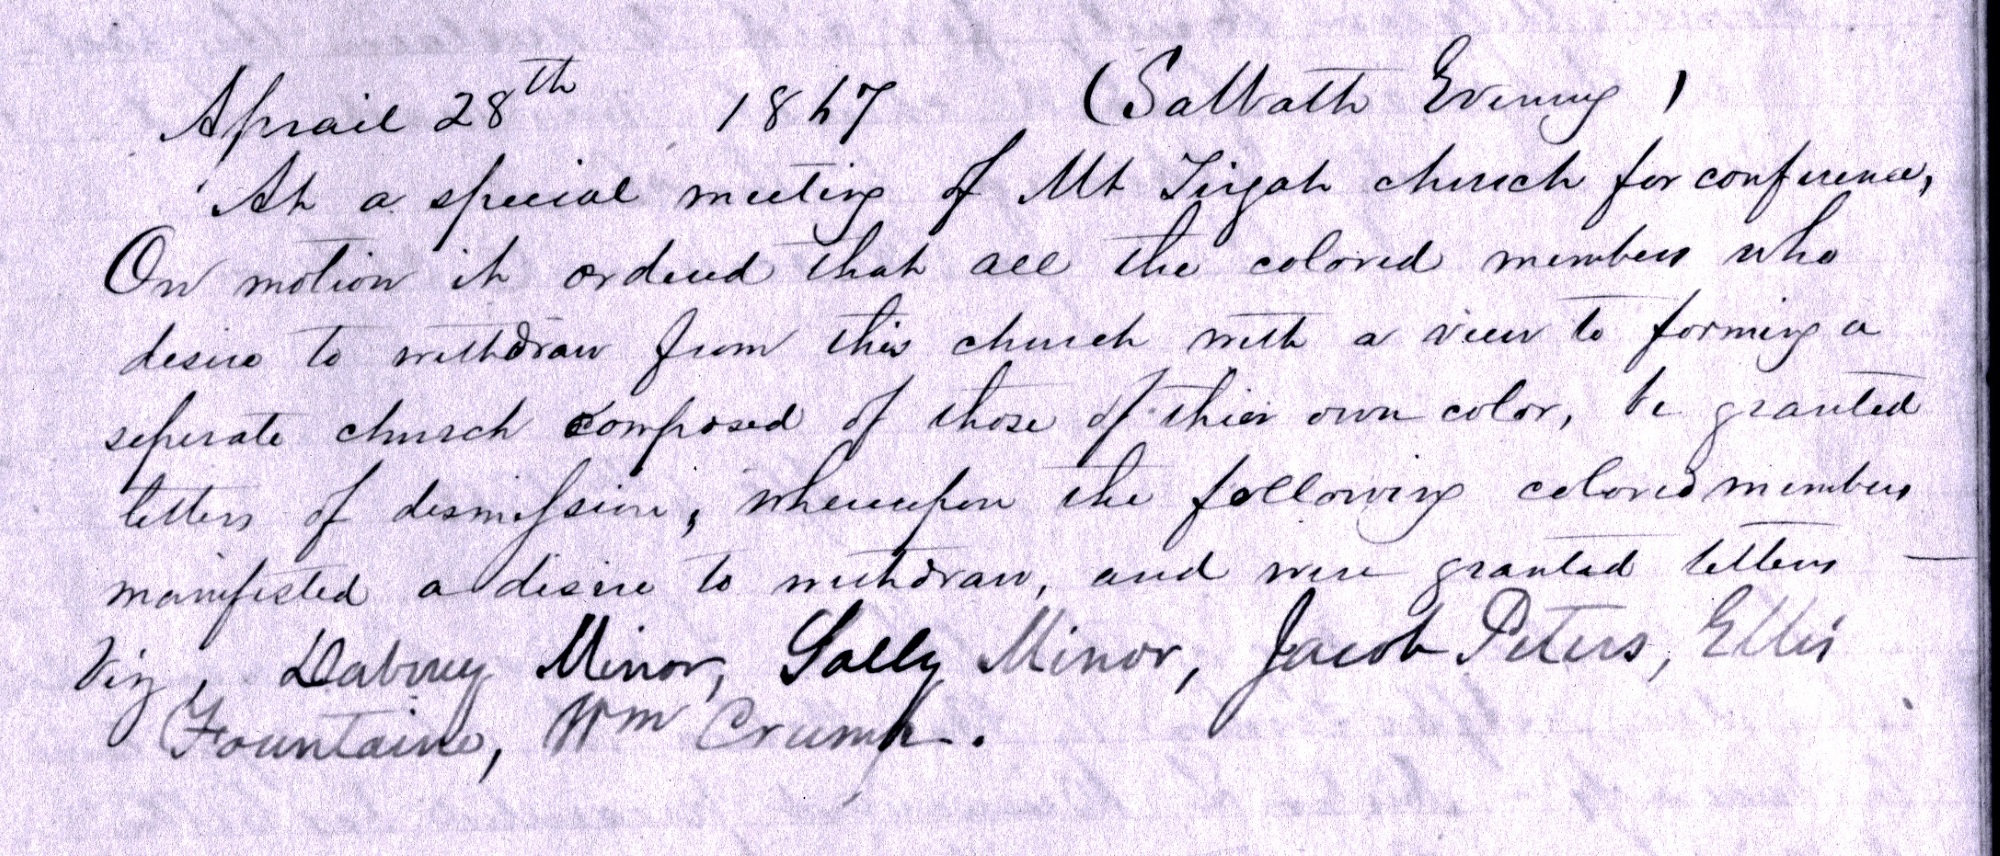 Aprail 28th 1867 (Sabbath Evening)
At a special meeting of Mt Tirzah church for conference,
On motion it ordered that all the colored members who
desire to withdraw from this church with a view to forming a
seperate church composed of those of thier own color, be granted
letters of dismission, whereupon the following colored members
manifested a desire to withdraw, and were granted letters —
Viz, Dabney Minor, Sally Minor, Jacob Peters, Ellis
Fountaine, Wm Crump.